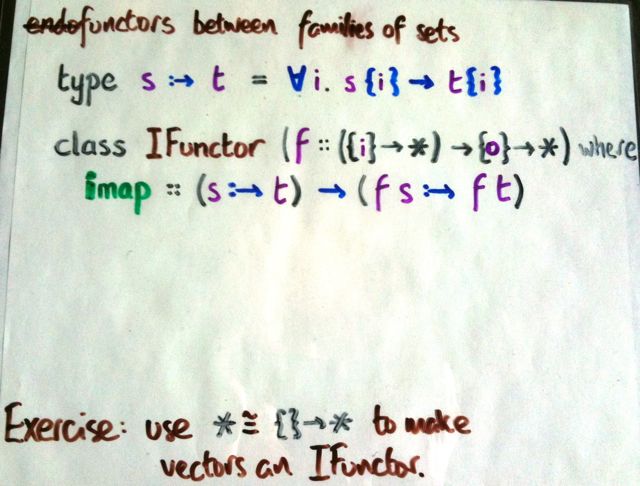 endofunctors between families of sets
type s :→ t = ∀i. s{i} → t{i}
class IFunctor (f :: ({i}→*) → {o}→*) where
imap :: (s :→ t) → (f s :→ f t)
Exercise: use * ≅ {}→* to make
vectors an IFunctor.